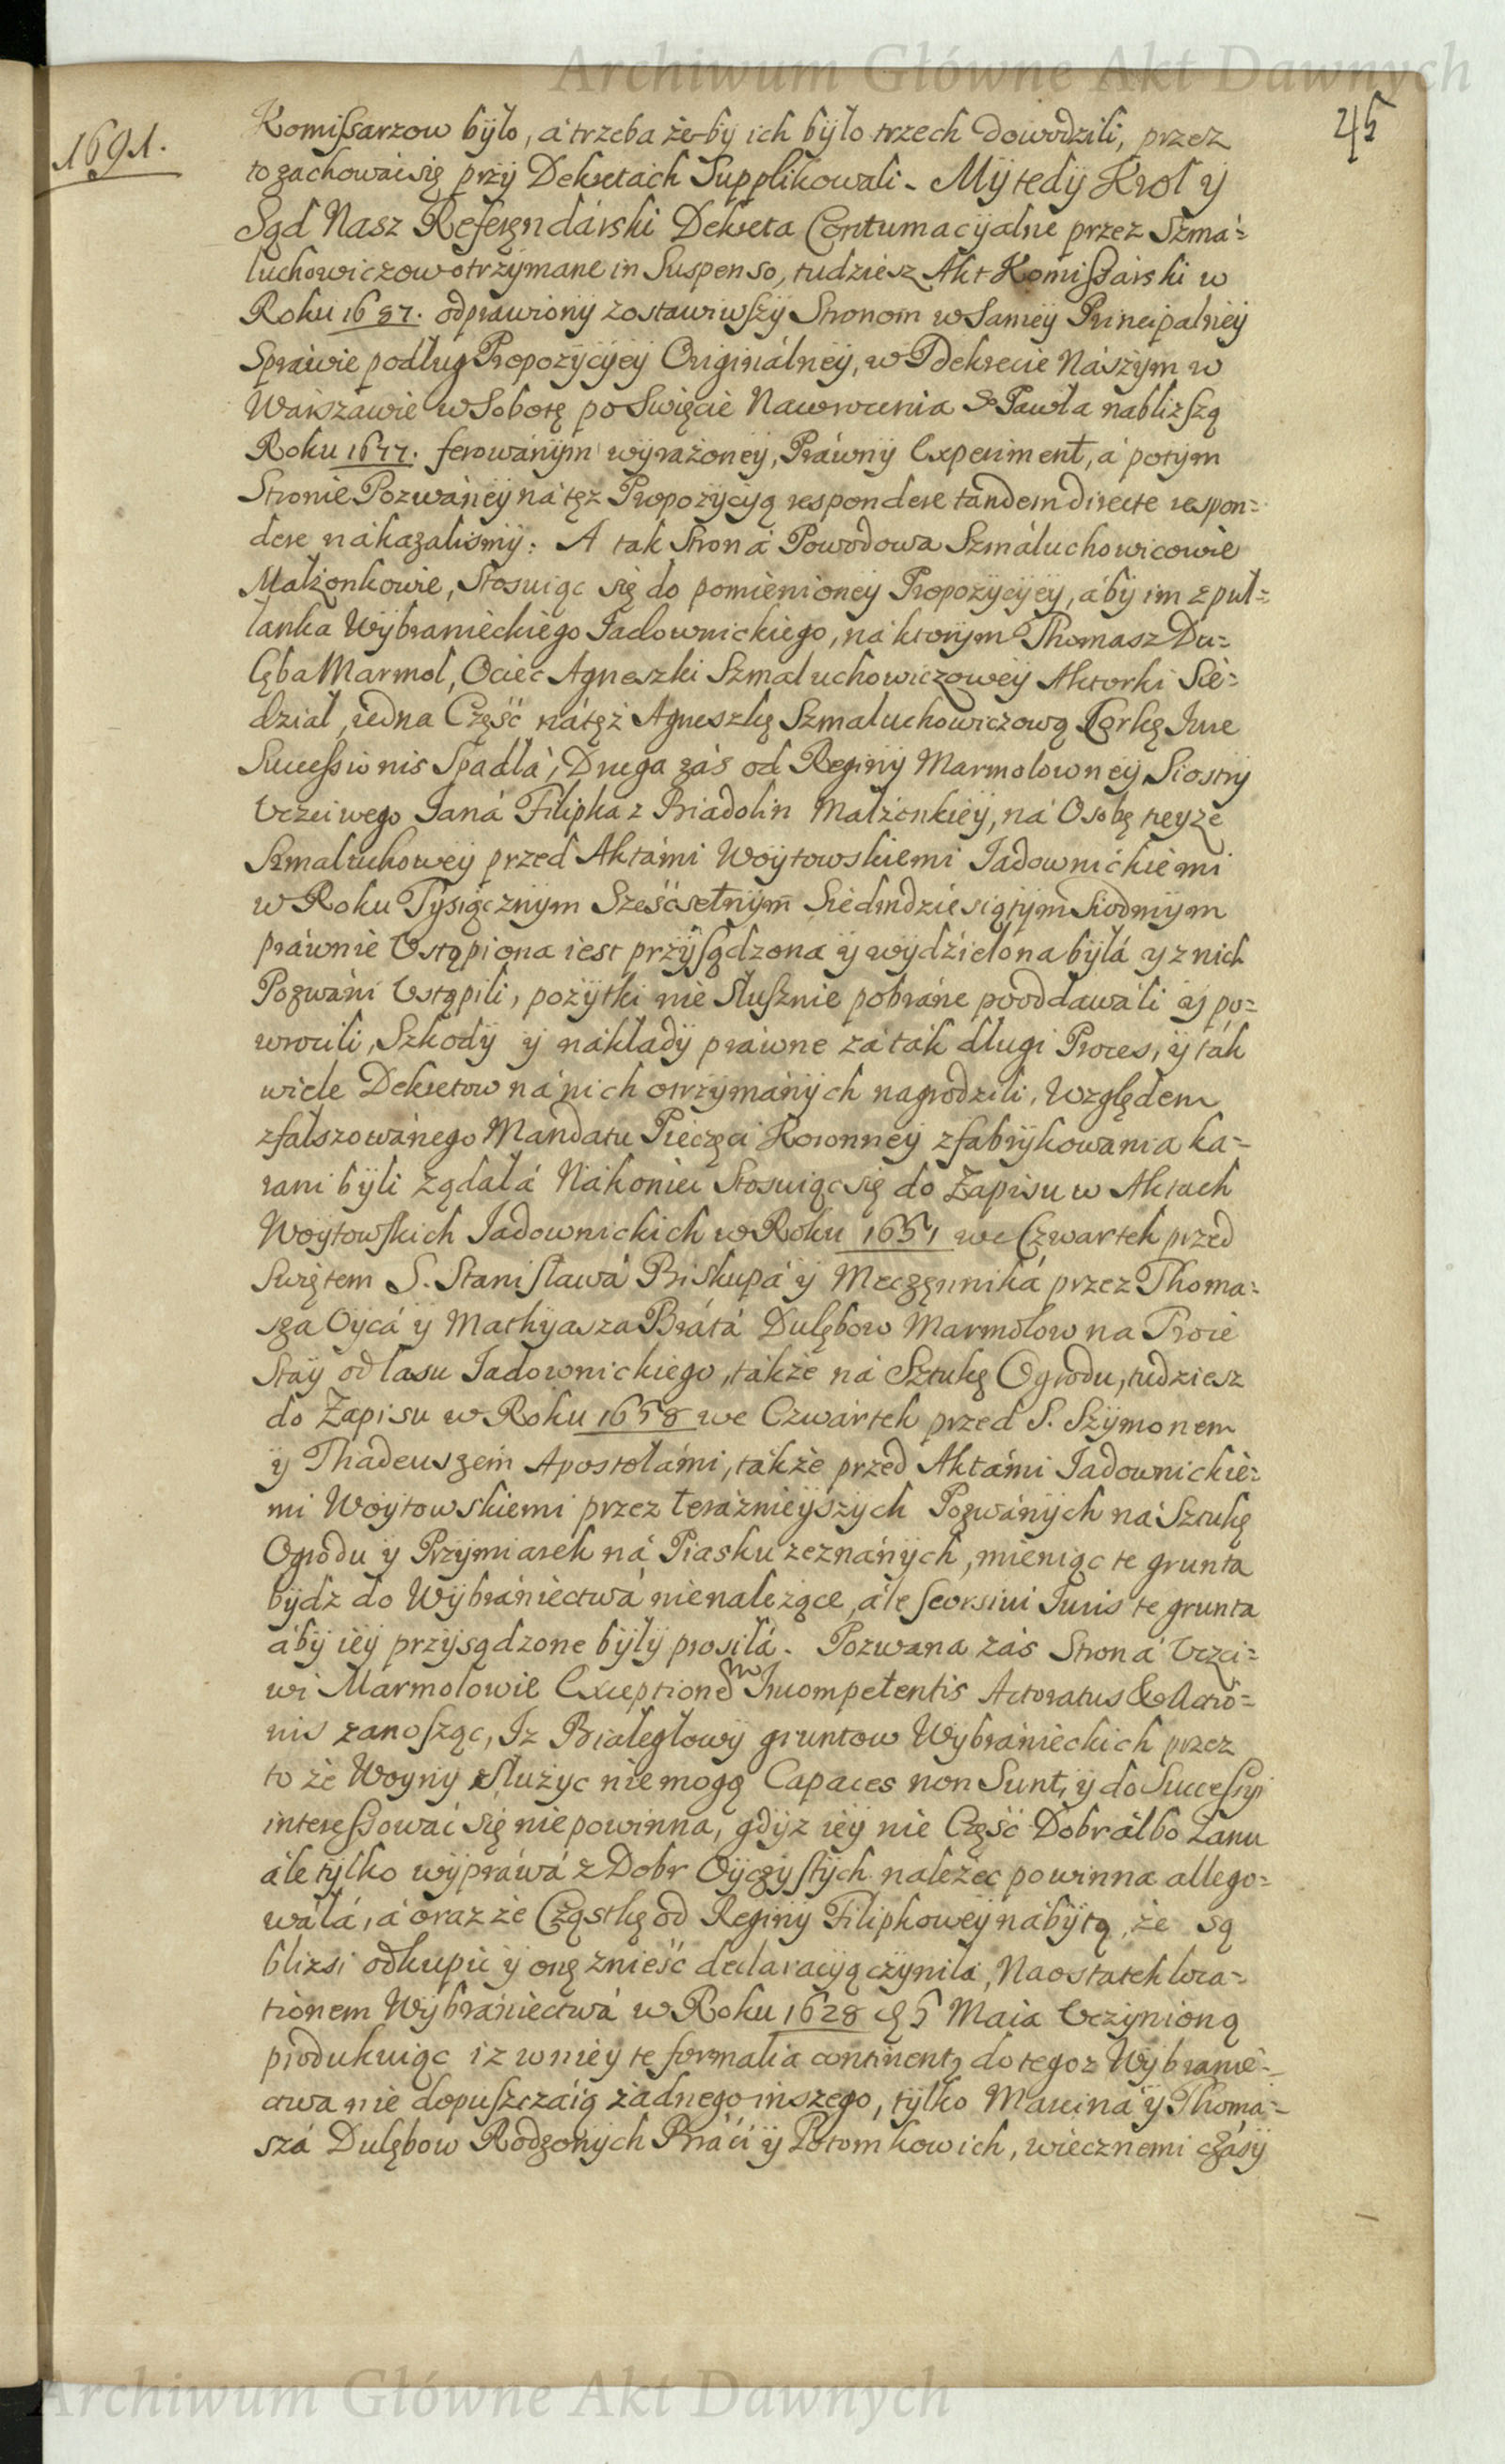 Archiwum Główne Akt Dawnych
45
1691.
Komißarzow było, á trzeba żeby ich było trzech dowodzili, przez
to zachowáć się przy Dekretách Supplikowali. My tedy Krol y
Sąd Nasz Referęndárski Dekreta Contumacyalne przez Szmá=
luchowiczow otrzymane in Suspenso, tudziesz Akt Komißárski w
Roku 1687. odprawiony zostawiwszy Stronom w Samey Principalney
Spráwie podług Propozycyey Originálney, w Dekrecie Nászym w
Warszáwie w Sobotę po Swięcie Nawrocenia S. Páwła nabliższą
Roku 1677. ferowánym wyrażoney, Práwny Experiment, á potym
Stronie Pozwáney ná tęz Propozycyą respondere tandem directe respon=
dere nákazalismy. A tak Stroná Powodowa Szmáluchowicowie
Małżonkowie, Stosuiąc się do pomienioney Propozycyey, áby im z puł=
łanka Wybránieckiego Jadownickiego, ná ktorym Thomasz Du=
lęba Marmol, Ociec Agneszki Szmaluchowiczowey Aktorki Sie=
dział, iedna Część ná tęż Agneszkę Szmaluchowiczową Corkę Jure
Sucessionis Spadłá, Druga záś od Reginy Marmolowney Siostry
Vczciwego Janá Filipka z Biadolin Małżonkiey, ná Osobę teyże
Szmaluchowey przed Aktámi Woytowskiemi Jadownickiemi
w Roku Tysiącznym Sześćsetnym Siedmdziesiątym Siodmym
práwnie Vstąpiona iest przysądzona y wydzielona byłá y z nich
Pozwáni Vstąpili, pożytki nie słusznie pobráne pooddawáli y po=
wrocili, Szkody y nákłady práwne zá ták długi Proces, y ták
wiele Dekretow ná nich otrzymánych nagrodzili, Względem
zfałszowánego Mandatu Pieczęci Koronney zfabrykowania ka=
rani byli żądałá Nákoniec Stosuiąc się do Zapisu w Aktach
Woytowskich Jadownickich w Roku 1651 we Czwartek przed
Swiętem S. Stanisławá Biskupá y Męczęnniká przez Thoma=
sza Oycá y Mathyasza Brátá Dulębow Marmolow na Troie
Stáy od lasu Jadownickiego, tákże ná Sztukę Ogrodu, tudziesz
do Zapisu w Roku 1658 we Czwártek przed S. Szymonem
y Thadeuszem Apostołámi, tákże przed Aktámi Jadownickie=
mi Woytowskiemi przez teráznieyszych Pozwánych ná Sztukę
Ogrodu y Przymiarek ná Piasku zeznánych, mieniąc te grunta
bydz do Wybrániectwá nienależące, ále seorsivi Juris te grunta
áby iey przysądzone były prosiłá. Pozwana záś Stroná Vczci=
wi Marmolowie Exceptionem Incompetentis Actoratus & Actio=
nis zanosząc, Iz Białegłowy gruntow Wybránieckich przez
to że Woyny Służyc niemogą Capaces non Sunt, y do Sucessyi
interessowáć się niepowinna, gdyz iey nie Część Dobr álbo Łanu
ále tylko wypráwá z Dobr Oyczystych należec powinna allego=
wáłá, á oraz że Cząstkę od Reginy Filipkowey nábytą, że są
blizsi odkupić y onę znieść declaracyą czyniłá, Naostatek loca=
tionem Wybrániectwá w Roku 1628 5 Maia Vczynioną
produkuiąc iz w niey te formalia continent do tegoz Wybranie=
ctwa nie dopuszczáią żadnego inszego, tylko Marcina y Thoma=
szá Dulębow Rodzonych Bráći y Potomkow ich, wiecznemi czásy
Archiwum Główne Akt Dawnych